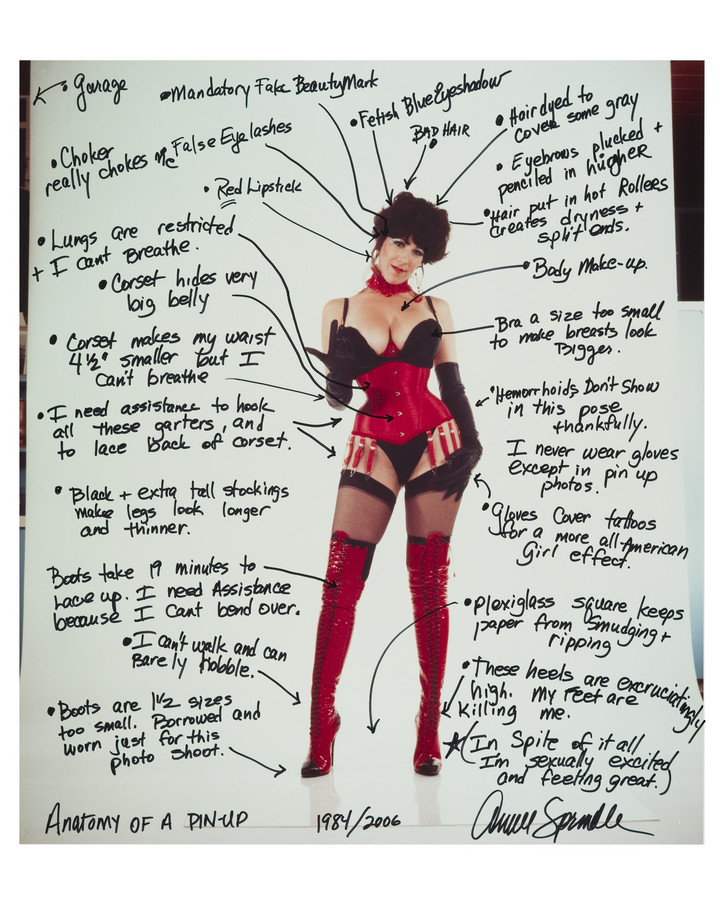 • Garage
• Mandatory Fake Beauty Mark
• Fetish Blue Eyeshadow
BAD HAIR
• Hair dyed to
cover some gray
• Choker
really chokes me
False Eyelashes
• Eyebrows plucked +
penciled in higher
• Red Lipstick
• Hair put in hot Rollers
creates dryness +
split ends.
• Lungs are restricted
+ I can't Breathe.
• Body Make-up.
• Corset hides very
big belly
• Bra a size too small
to make breasts look
Bigger.
• Corset makes my waist
4½" smaller but I
can't breathe
• Hemorrhoids Don't Show
in this pose
thankfully.
• I need assistance to hook
all these garters, and
to lace back of corset.
I never wear gloves
except in pin up
photos.
• Black + extra tall stockings
make legs look longer
and thinner.
• Gloves Cover tattoos
for a more all-American
Girl effect.
Boots take 19 minutes to
lace up. I need Assistance
because I cant bend over.
• plexiglass square keeps
paper from smudging +
ripping
• I can't walk and can
Barely hobble.
• These heels are excruciatingly
high. My feet are
killing me.
• Boots are 1½ sizes
too small. Borrowed and
worn just for this
photo shoot.
★(In Spite of it all
I'm sexually excited
and feeling great.)
ANATOMY OF A PIN-UP
1984/2006
Annie Sprinkle